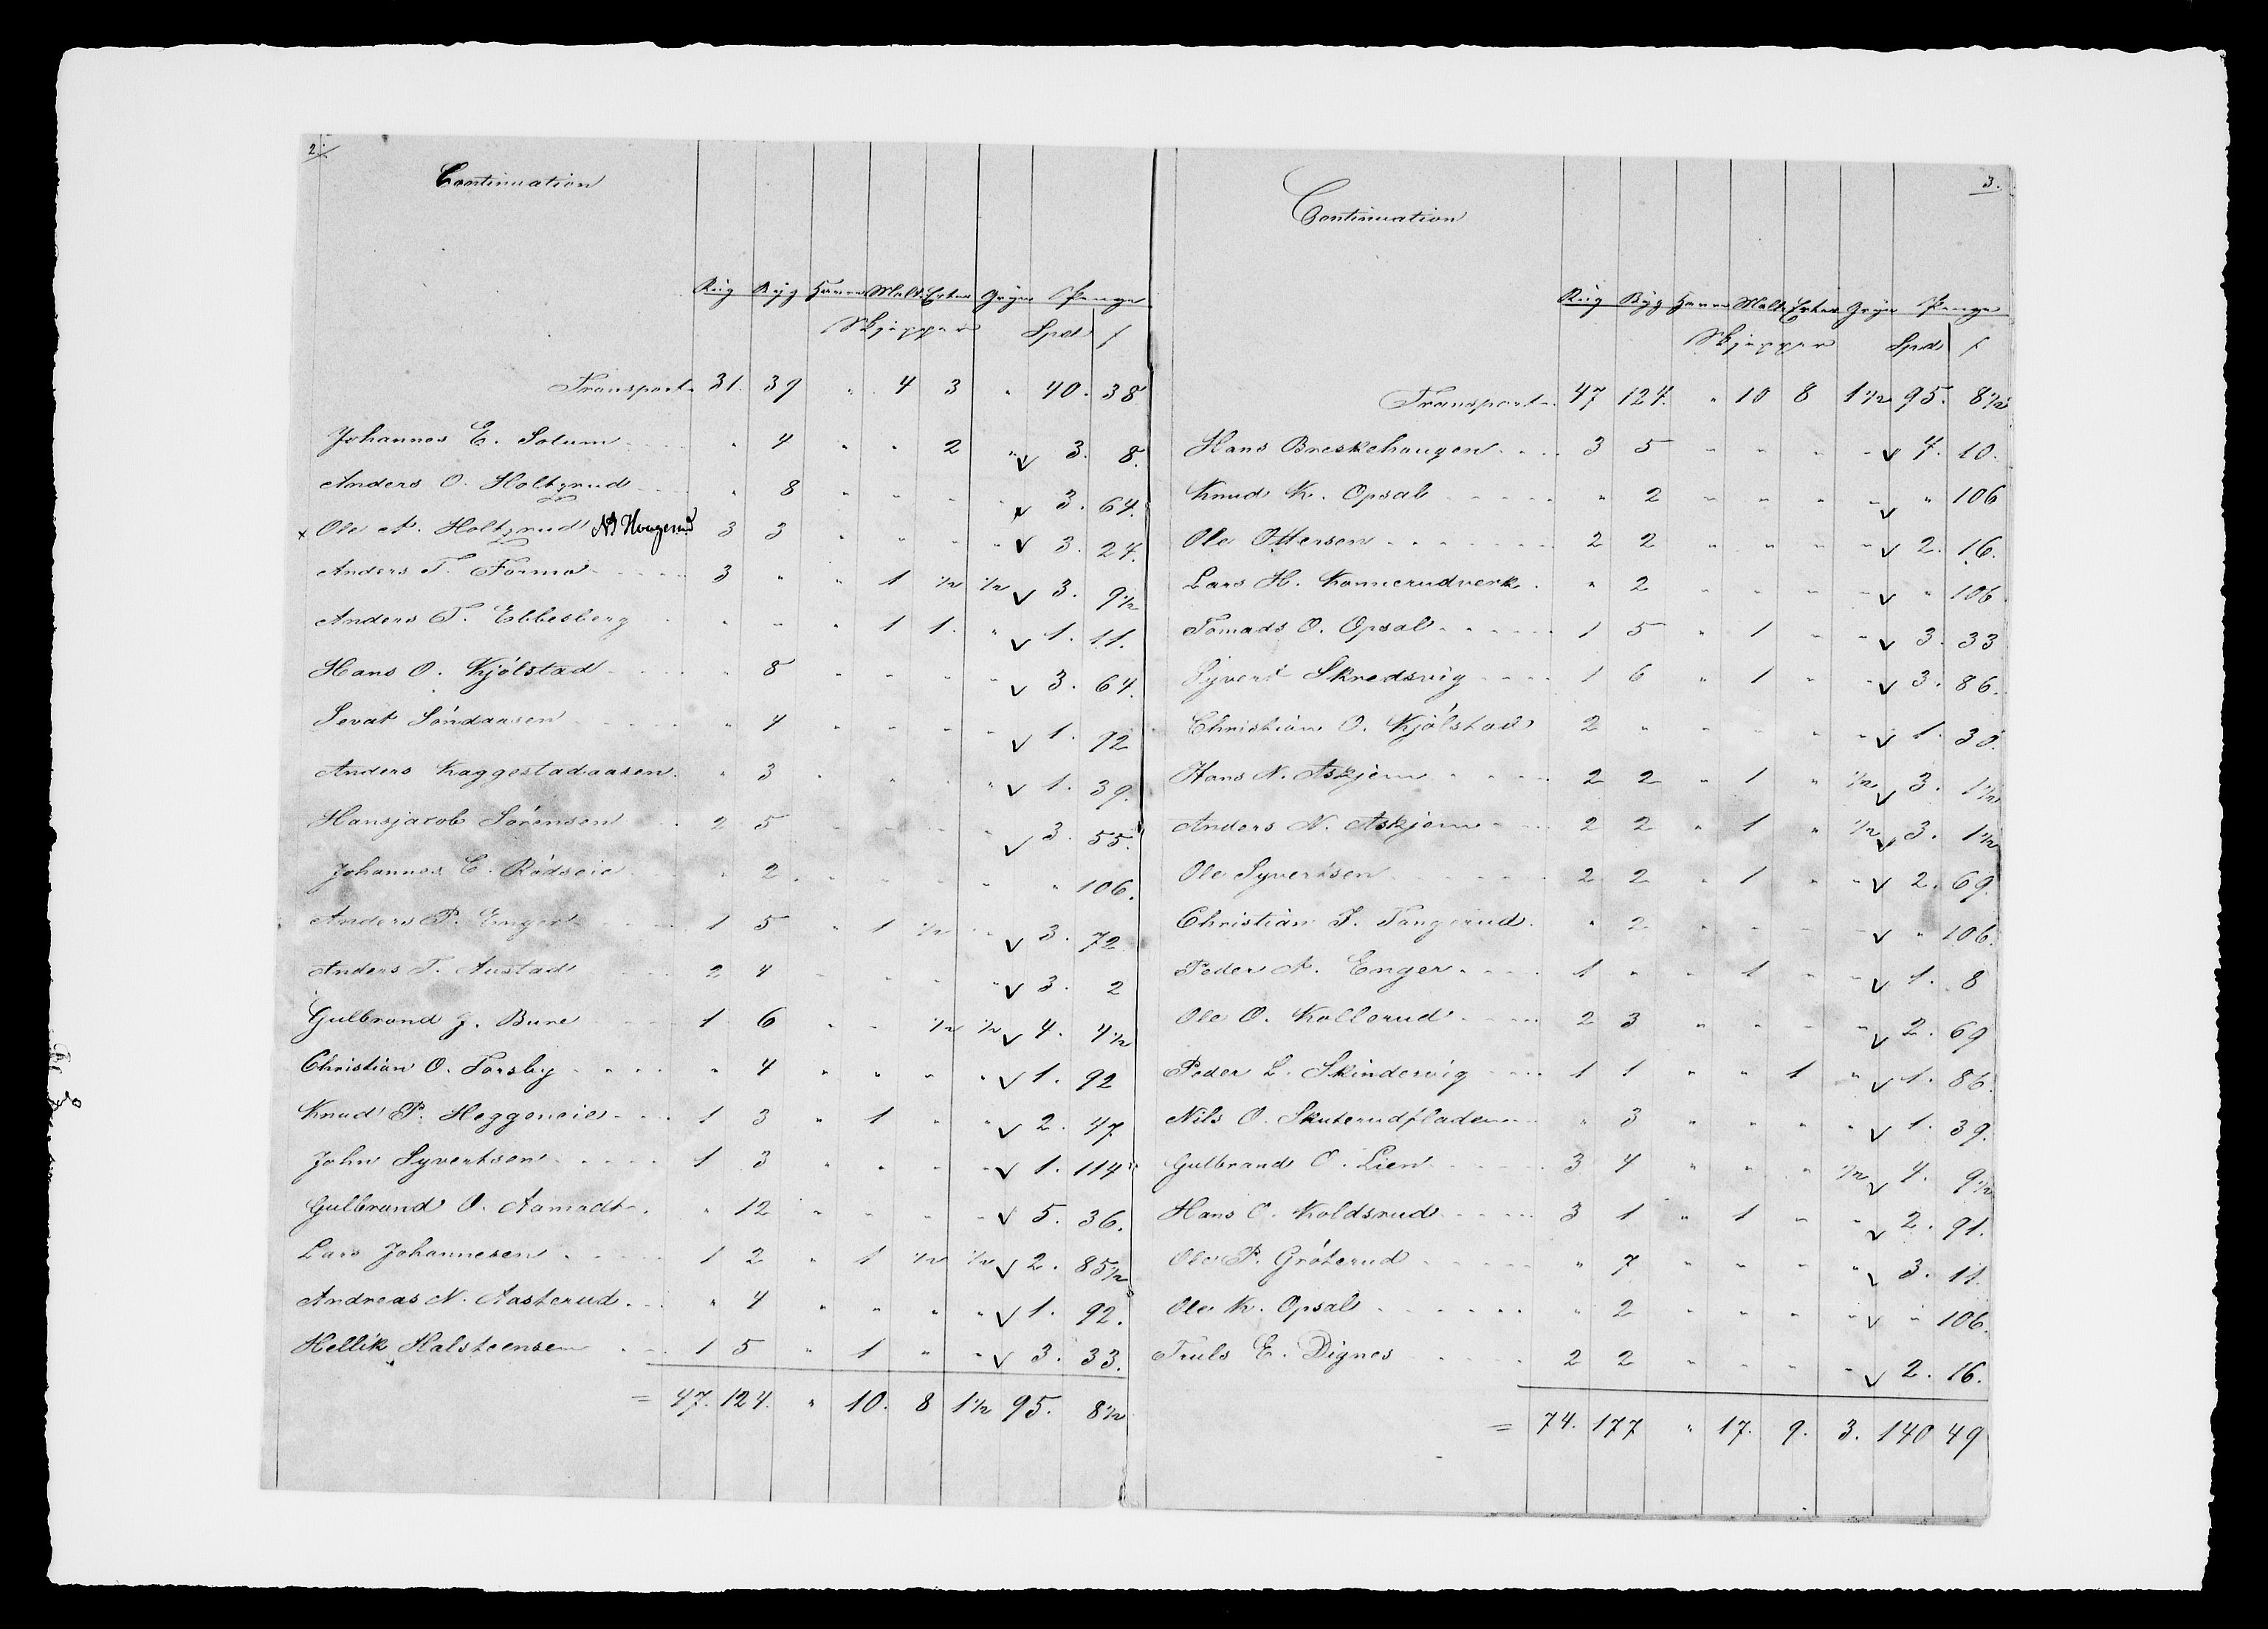 2.
Continuation
Rug Byg Havre Malt Erter Gryn Penge
Skjepper Spd ſ
Transport 31. 39 " 4 3 " 40. 38
Johannes E. Solum " 4 " " 2 " √ 3. 8.
Anders O. Holtzrud " 8 " " " " √ 3. 64.
x Ole A. Holtzrud 3 3 " " " " √ 3. 24.
Anders T. Formo 3 " " 1 1/2 1/2 √ 3. 9 1/2
Anders T. Ebbesberg " " " 1 1. " √ 1. 11.
Hans O. Kjölstad " 8 " " " " √ 3. 64.
Sevat Söndaasen " 4 " " " " √ 1. 92
Anders Kaggestadaasen. " 3 " " " " √ 1. 39.
Hansjacob Sörensen 2 5 " " " " √ 3. 55.
Johannes E. Rödseie " 2 " " " " " 106.
Anders P. Enger 1 5 " 1 1/2 " √ 3. 72
Anders T. Austad 2 4 " " " " √ 3. 2
Gulbrand J. Bure 1 6 " " 1/2 1/2 √ 4. 4 1/2
Christian O. Forsby " 4 " " " " √ 1. 92
Knud P. Heggeneie 1 3 " 1 " " √ 2. 47
John Syvertsen 1 3 " " " " √ 1. 114
Gulbrand O. Aamodt " 12 " " " " √ 5. 36.
Lars Johannesen 1 2 " 1 1/2 1/2 √ 2. 85 1/2
Andreas N. Aasterud " 4 " " " " √ 1. 92.
Hellik Halsteensen 1 5 " 1 " " √ 3. 33.
= 47. 124. " 10. 8 1 1/2 95. 8 1/2
3.
Continuation
Rug Byg Havre Malt Erter Gryn Penge
Skjepper Spd ſ
Transport 47 124. " 10 8 1 1/2 95. 8 1/2
Hans Breskehaugen 3 5 " " " " √ 4. 10.
Knud K. Opsal " 2 " " " " √ " 106
Ole Ottersen 2 2 " " " " √ 2. 16.
Lars H. Konnerudverk " 2 " " " " √ " 106
Tomads O. Opsal 1 5 " 1 " " √ 3. 33
Syvert Skredsvig 1 6 " 1 " " √ 3. 86.
Christian O. Kjölstad 2 " " " " " √ 1. 30.
Hans N. Askjem 2 2 " 1 " 1/2 √ 3. 1 1/2
Anders N. Askjem 2 2 " 1 " 1/2 √ 3. 1 1/2
Ole Syvertsen 2 2 " 1 " " √ 2. 69.
Christian J. Tangerud. " 2 " " " " √ " 106.
Peder A. Enger 1 " " 1 " " √ 1. 8
Ole O. Kollerud 2 3 " " " " √ 2. 69
Peder L. Skindervig 1 1 " " 1 " √ 1. 86.
Nils O. Skuterudfladen " 3 " " " " √ 1. 39.
Gulbrand O. Lien 3 4 " " " 1/2 √ 4. 9 1/2
Hans O. Koldsrud 3 1 " 1 " " √ 2. 91.
Ole P. Gröterud " 7 " " " " √ 3. 11.
Ole K. Opsal " 2 " " " " √ " 106.
Truls E. Dignes 2 2 " " " " √ 2. 16.
= 74. 177 " 17. 9. 3. 140 49